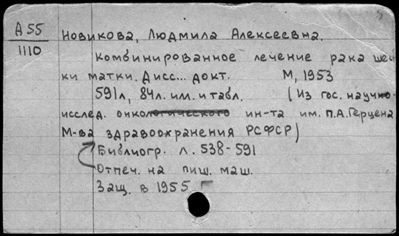 А55
1110
Новикова, Людмила Алексеевна.
Комбинированное лечение рака шей-
ки матки. Дисс... докт. М, 1953
591л, 84л. им. и табл. (Из гос. научно-
исслед. онкологического ин-та им. П.А. Герцена
М-ва здравоохранения РСФСР)
Библиогр. л. 538-591
Отпеч. на пиш. маш.
Защ. в 1955 г